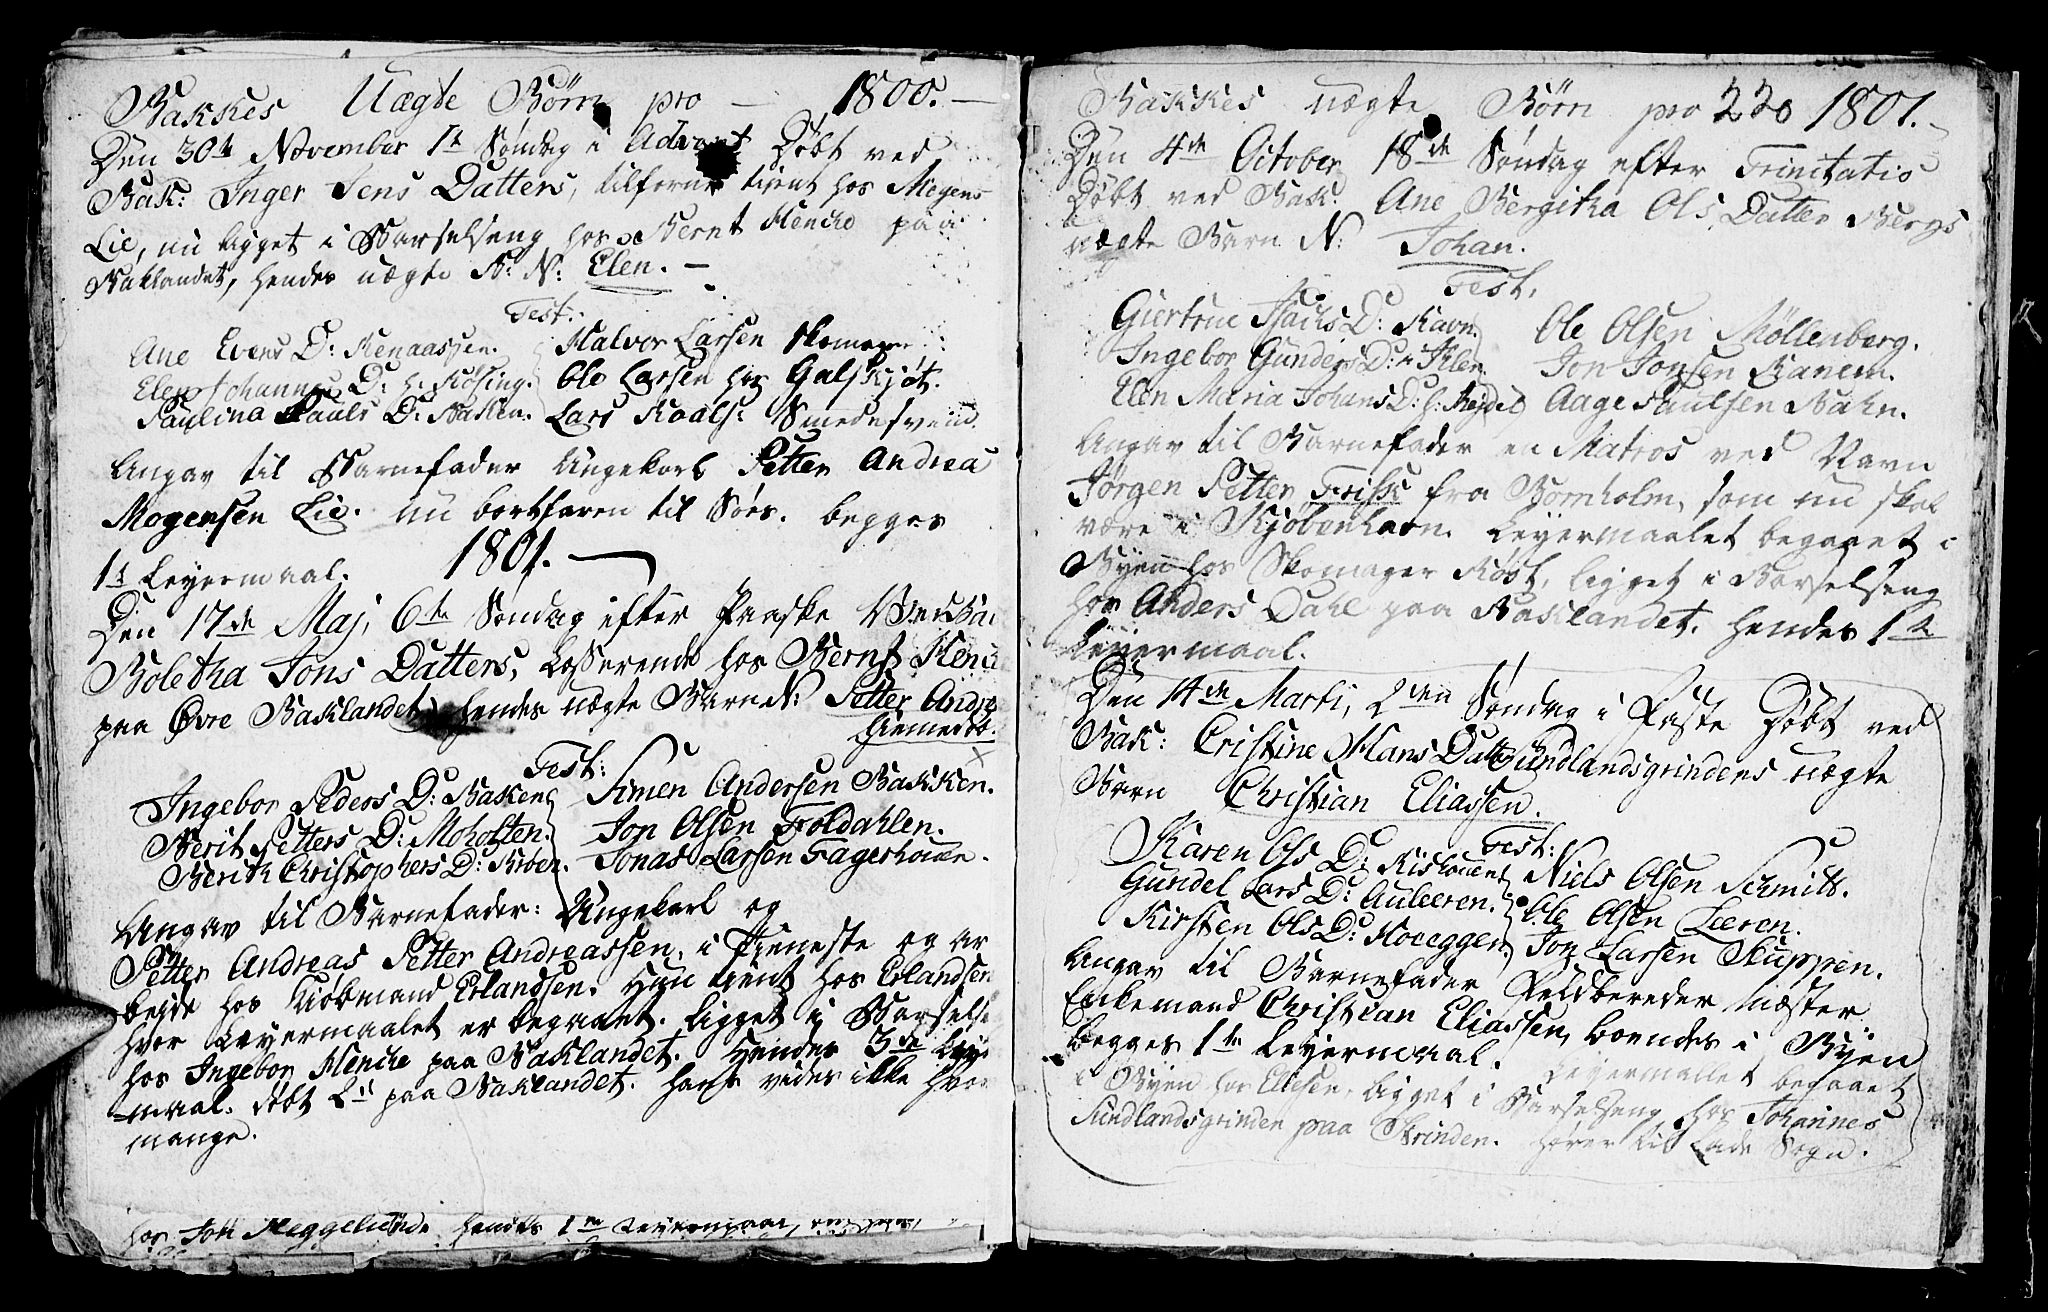 Bakkes Uægte Børn pro — 1800. —
Den 30te November 1te Søndag i Advent Døbt ved
Bak: Inger Jens Datters, tilforne tient hos Mogens
Lie, nu ligget i Barselseng hos Bernt Hencke paa
Baklandet, hendes uægte B: N: Elen. —
Test:
Ane Evens D: Kenaassen. Halvor Larsen Skomager
Elen Johannes D: h. Røsing. Ole Larsen hos Galskjøt.
Paulina Pauls D: Bakken. Lars Roals: Smedesvend.
Angav til Barnefader Ungekarl Petter Andrea
Mogensen Lie. nu bortfaren til Søes. begges
1te Leyermaal. 1801. —
Den 17de Maj, 6te Søndag efter Paaske
Boletha Jons Datters, Losserende hos Bernt Henck
paa Øvre Baklandet, hendes uægte Barn N: Petter Andre
Hiemedøb.
Test:
Ingebor Peders D: Bakken Simen Andersen Bakken.
Berit Petters D: Moholten. Jon Olsen Foldahlen.
Berith Christophers D: Broen. Jonas Larsen Fagerhouen.
Angav til Barnefader: Ungekarl og
Petter Andreas Petter Andreassen, i Tieneste og ar
bejde hos Kiøbmand Erlandsen. Hun tient hos Erlandsen
hvor Leyermaalet er begaaet. ligget i Barselse
hos Ingebor Hencke paa Baklandet. Hendes 3de Leye
maal. døbt paa Baklandet. hans vides ikke hvor
mange.
hos Jon Heggelund. hendes 1te Leyermaal,
Bakkes uægte Børn pro 220 1801. —
Den 4de October 18de Søndag efter Trinitatis
Døbt ved Bak: Ane Bergitha Ols Datter Bergs
uægte Barn N: Johan.
Test,
Giertrue Isachs D: Ravn Ole Olsen Möllenberg.
Ingebor Gunders D: i Ihlen Jon Jonsen Ranem.
Elen Maria Johans D: h. Mejdel Aage Paulsen Bahn.
Angav til Barnefader en Matros ved Navn
Jørgen Petter Frisk fra Bornholm, som nu skal
være i Kjøbenhavn. Leyermaalet begaaet i
Byen hos Skomager Røst, ligget i Barselseng
hos Anders Dahl paa Baklandet. hendes 1te
Leyermaal.
Den 14de Marti, 2den Søndag i Faste Døbt ved
Bak: Cristine Hans Datter Sundlandsgrindens uægte
Barn Christian Eliassen.
Test:
Karen Ols D: Riskouen Niels Olsen Schmitt.
Gundel Lars D: Auleeren. Ole Olsen Leeren.
Kirsten Ols D: Hoeggen. Jon Larsen Stuppen.
Angav til Barnefader Feldbereder Mæster
Enkemand Christian Eliassen, boendes i Byen
begges 1te Leyermaal. Leyermallet begaaet
i Byen hos Eliesen, ligget i Barselseng hos Johannes
Sundlandsgrinden paa Strinden. hører til Lade Sogn.